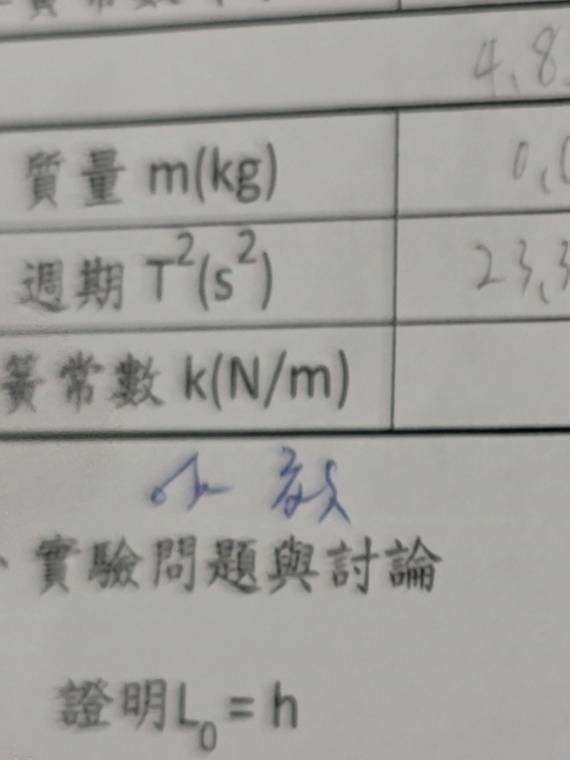 4.8
質量 m(kg) 0.0
週期 T²(s²) 23.3
簧常數 k(N/m)
、實驗問題與討論
證明L₀ = h